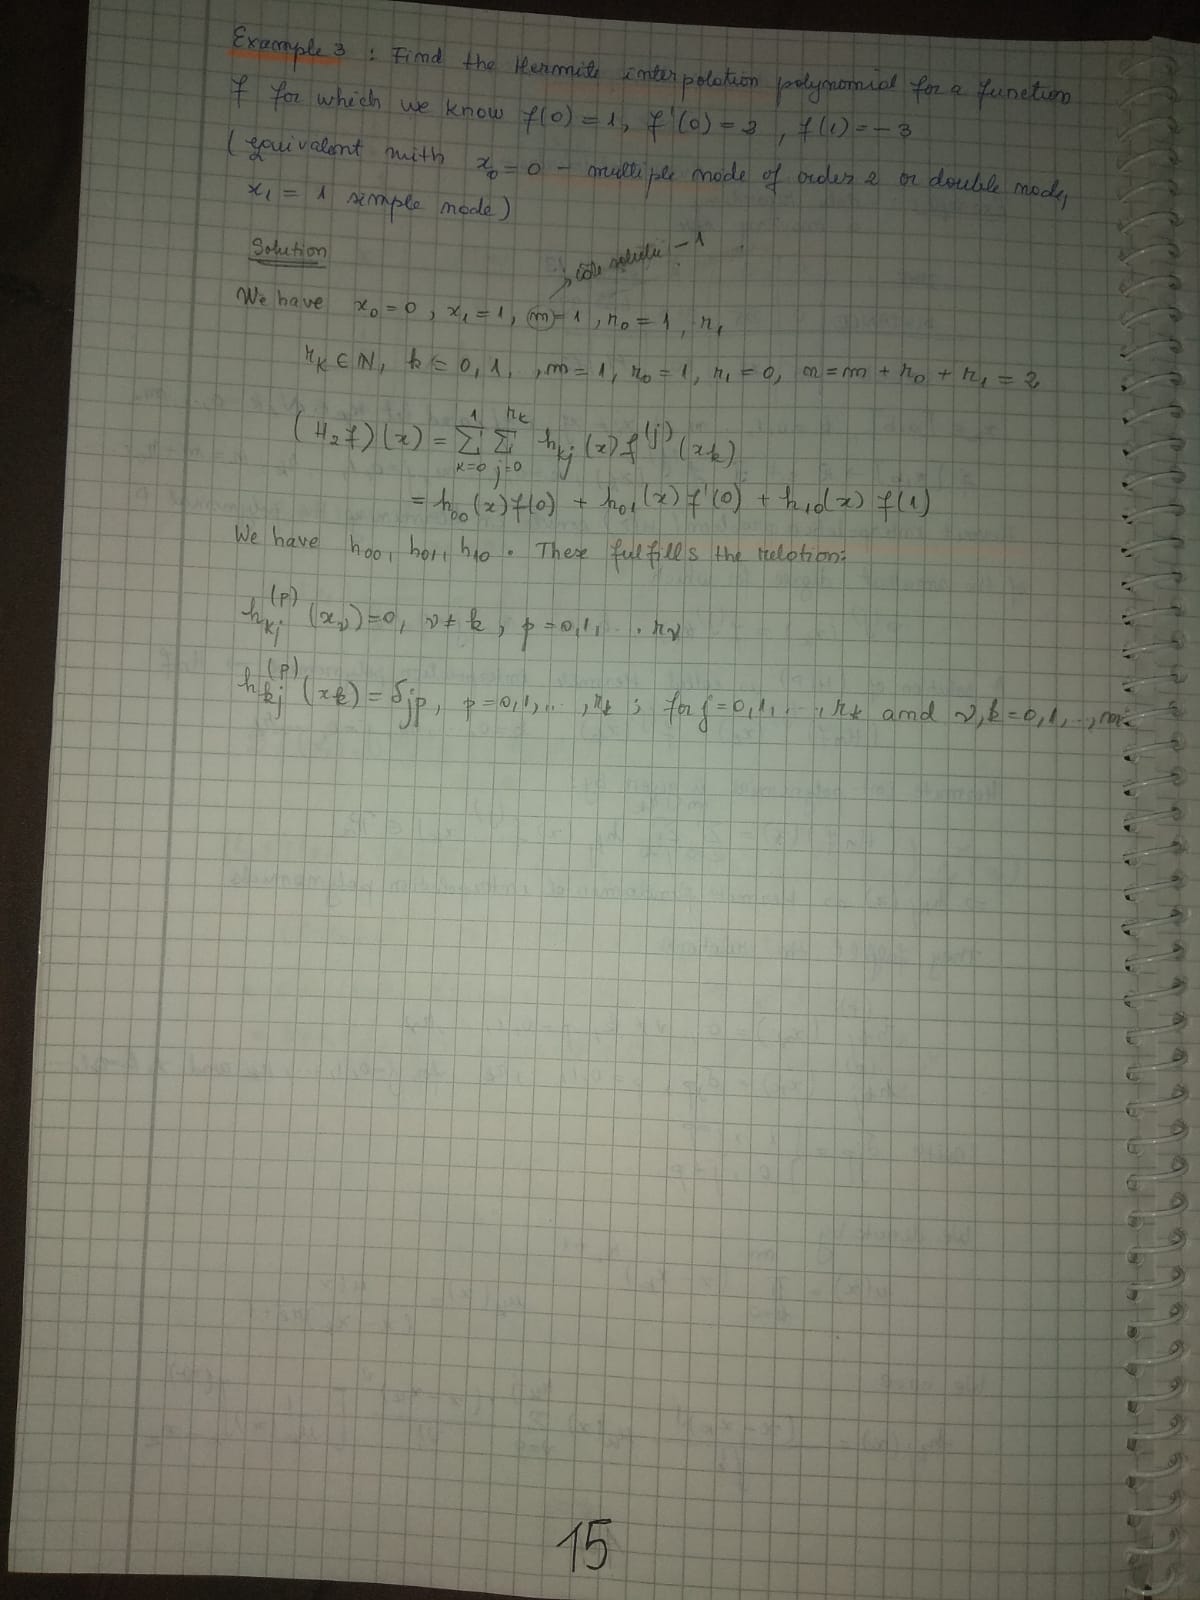 Example 3 : Find the Hermite interpolation polynomial for a function
f for which we know f(0) = 1, f'(0) = 2, f(1) = -3
(equivalent with x₀ = 0 - multiple node of order 2 or double node,
x₁ = 1 simple node)
Solution
- 1
We have x₀ = 0, x₁ = 1, m = 1, r₀ = 1, r₁
r_k ∈ N, k = 0, 1, , m = 1, r₀ = 1, r₁ = 0, n = m + r₀ + r₁ = 2
(H₂f)(x) = Σ_{k=0}^{1} Σ_{j=0}^{r_k} h_{kj}(x) f^{(j)}(x_k)
= h₀₀(x) f(0) + h₀₁(x) f'(0) + h₁₀(x) f(1)
We have h₀₀, h₀₁, h₁₀. These fulfills the relation:
h_{kj}^{(p)}(x_ν) = 0, ν ≠ k, p = 0, 1, ... r_ν
h_{kj}^{(p)}(x_k) = δ_{jp}, p = 0, 1, ..., r_k ; for j = 0, 1, ..., r_k and ν, k = 0, 1, .., m
15